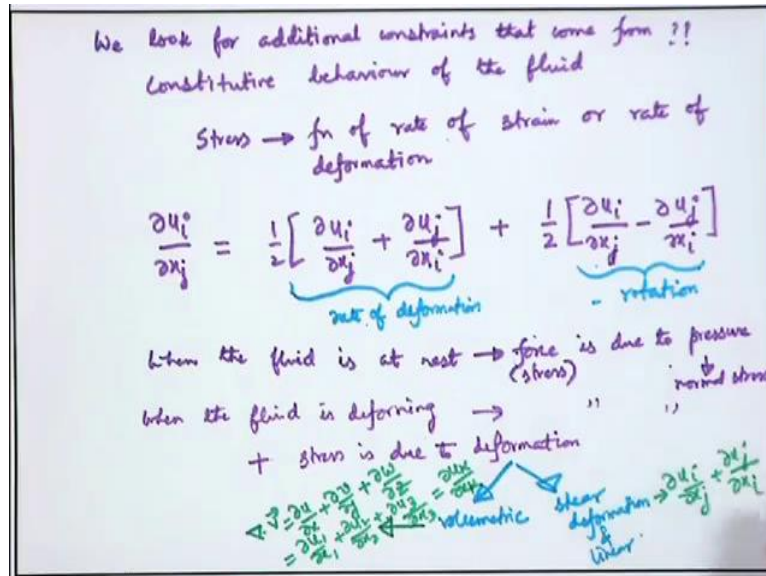 We look for additional constraints that come from ??
Constitutive behaviour of the fluid
Stress → fn of rate of strain or rate of
deformation
∂ui/∂xj = 1/2 [∂ui/∂xj + ∂uj/∂xi] + 1/2 [∂ui/∂xj - ∂uj/∂xi]
rate of deformation
- rotation
When the fluid is at rest → force is due to pressure
(stress) ↓ normal stress
When the fluid is deforming → " "
+ stress is due to deformation
∇.v⃗ = ∂u/∂x + ∂v/∂y + ∂w/∂z
= ∂u1/∂x1 + ∂u2/∂x2 + ∂u3/∂x3 = ∂uk/∂xk
volumetric
shear
deformation → ∂ui/∂xj + ∂uj/∂xi
&
linear